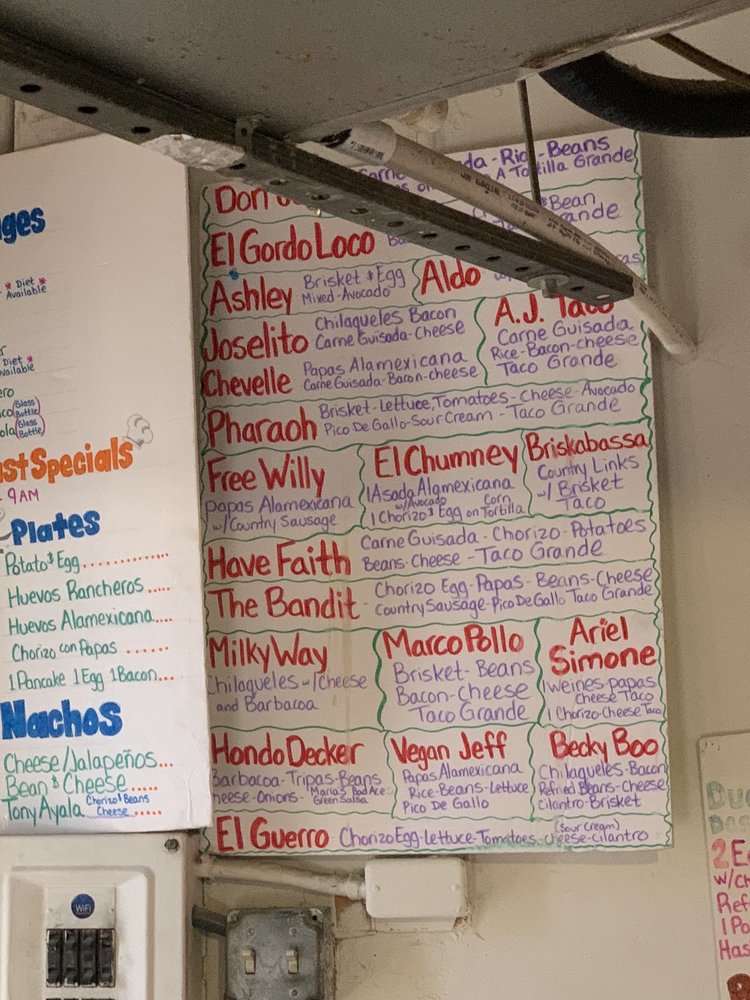 da-Rice-Beans
A Tortilla Grande
Don
Bean
El Gordo Loco
Ashley Brisket & Egg
Mixed-Avocado
Aldo
Joselito Chilaqueles Bacon
Carne Guisada-Cheese
A.J. Taco
Carne Guisada
Rice-Bacon-cheese
Taco Grande
Chevelle Papas Alamexicana
Carne Guisada-Bacon-cheese
Pharaoh Brisket-Lettuce, Tomatoes-Cheese-Avocado
Pico De Gallo-Sour Cream-Taco Grande
Free Willy
Papas Alamexicana
w/Country Sausage
El Chumney
1 Asada Alamexicana
w/Avocado
1 Chorizo & Egg on Corn Tortilla
Briskabassa
Country Links
w/ Brisket
Taco
Have Faith Carne Guisada-Chorizo-Potatoes
Beans-Cheese-Taco Grande
The Bandit Chorizo Egg-Papas-Beans-Cheese
Country Sausage-Pico De Gallo Taco Grande
Milky Way
Chilaqueles w/Cheese
and Barbacoa
Marco Pollo
Brisket-Beans
Bacon-Cheese
Taco Grande
Ariel
Simone
1 Weines-papas
Cheese Taco
1 Chorizo-Cheese Taco
Hondo Decker
Barbacoa-Tripas-Beans
heese-Onions-Maria's Bad Ace
Green Salsa
Vegan Jeff
Papas Alamexicana
Rice-Beans-Lettuce
Pico De Gallo
Becky Boo
Chilaqueles-Bacon
Refried Beans-Cheese
cilantro-Brisket
El Guerro Chorizo Egg-Lettuce-Tomatoes, cheese-cilantro
(Sour Cream)
ges
* Diet *
Available
Diet *
Available
ero
(Glass Bottle)
ola (Glass Bottle)
st Specials
9 AM
Plates
Potato & Egg............
Huevos Rancheros.....
Huevos Alamexicana....
Chorizo con Papas......
1 Pancake 1 Egg 1 Bacon...
Nachos
Cheese/Jalapeños...
Bean & Cheese.....
Tony Ayala Chorizo & Beans
Cheese.....
WiFi
2 E
w/Ch
Ref
1 Po
Has